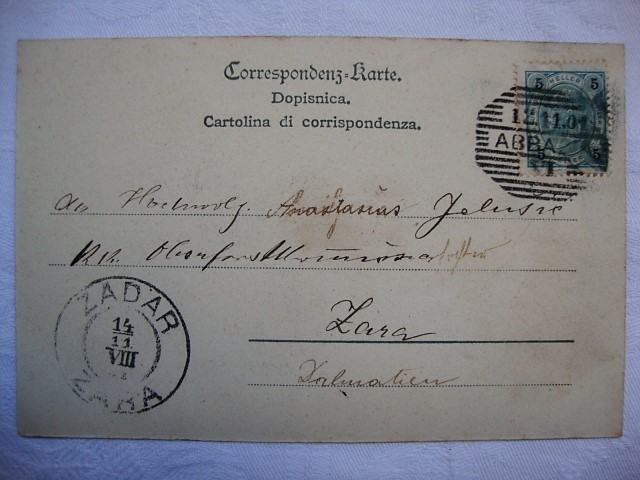 Correspondenz-Karte.
Dopisnica.
Cartolina di corrispondenza.
5 HELLER 5
12.11.01
ABBA
5 5
An Hochwolg Anastasius Jelusic
Kk. Oberforstkommissar
Zara
Dalmatien
ZADAR
14
11
VIII
ZARA